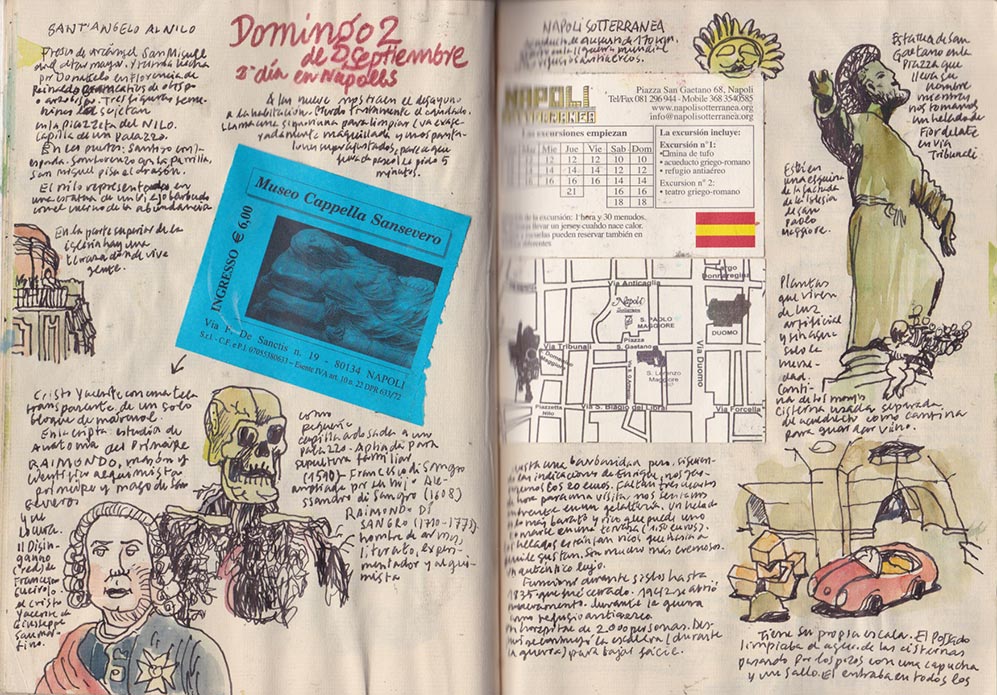 SANT'ANGELO AL NILO
Domingo 2
de Septiembre
2º día en Nápoles
Presos de arcángel San Miguel
en el altar mayor. Y tumba hecha
por Donatelo en Florencia de
Reinaldo Brancacios de obispo
o arzobispo. Tres figuras feme-
ninas le sujetan
en la Piazzeta del NILO.
Capilla de un palazzo.
En las puertas: Santos con
espada. San Lorenzo con la parrilla,
San Miguel pisa el dragón.
El nilo representado en
una estatua de un viejo barbudo
con el cuerno de la abundancia
En la parte superior de la
iglesia hay una
terraza donde vive
gente.
A las nueve nos traen el desayuno
a la habitación.
minutos.
Museo Cappella Sansevero
INGRESSO € 6,00
Via F. De Sanctis n. 19 - 80134 NAPOLI
S.r.l. - C.F. e P.I. 07055380633 - Esente IVA art. 10 n. 22 DPR 633/72
Cristo Yacente con una tela
transparente de un solo
bloque de mármol.
En la cripta estudio de
Anatomía del Príncipe
RAIMONDO, masón y
científico alquimista
príncipe y mago de San
Severo
y su
locura.
Il Disin-
ganno
(red) de
Francesco
Queirolo.
el Cristo
Yacente de
Giuseppe
Sanmar-
tino.
como
pequeña
capilla adosada a un
palazzo. Aplinada para
sepultura familiar
(1590) - Francisco di Sangro
ampliado por el hijo Ale-
ssandro di Sangro (1608)
RAIMONDO DI
SANGRO (1710-1771)
hombre de armas,
literato, exper-
imentador y alqui-
mista
NAPOLI SOTTERRANEA
NAPOLI
SOTTERRANEA
Piazza San Gaetano 68, Napoli
Tel/Fax 081 296 944 - Mobile 368 3540585
www.napolisotterranea.org
info@napolisotterranea.org
Las excursiones empiezan
Mar Mie Jue Vie Sab Dom
12 12 12 10 10
14 14 14 12 12
16 16 16 14 14
21 16 16
18 18
La excursión incluye:
Excursión n° 1:
• mina de tufo
• acueducto griego-romano
• refugio antiaéreo
Excursion n° 2:
• teatro griego-romano
de la excursión: 1 hora y 30 menudos.
llevar un jersey cuando nace calor.
escuelas pueden reservar también en
diferentes
Largo
Donnaregina
Via Anticaglia
Napoli
S. PAOLO
MAGGIORE
DUOMO
Piazza
S. Gaetano
Via Tribunali
S. Domenico
Maggiore
S. Lorenzo
Maggiore
Via Duomo
Piazzetta
Nilo
Via S. Biagio dei Librai
Via Forcella
Estatua de San
Gaetano en la
Piazza que
lleva su
nombre
mientras
nos tomamos
un helado de
Fiordelate
en via
Tribunali
Está en
una esquina
de la fachada
de la iglesia
de San
Paolo
Maggiore.
Plantas
que viven
de luz
artificial
y sin agua
solo la
hume-
dad.
Canti-
na de los monjes
cisterna usada, separada
de acueducto como cantina
para guardar vino.
Cuesta una barbaridad pero siguien-
do las indicaciones de Enrique, nos ga-
namos los 20 euros. Faltan tres cuartos
de hora para una visita. Nos sentamos
enfrente en un gelateria. Un helado
es lo más barato y rico que puede uno
tomarse en una terraza (1.50 euros).
Los helados están tan ricos que hasta a
me gustan. Son mucho más cremosos.
Un auténtico lujo.
Funcionó durante siglos hasta
1835 que fue cerrado. 1942 se abrió
nuevamente. durante la guerra
como refugio antiaéreo
de 2.000 personas. Des-
pués se construyó la escalera (durante
la guerra) para bajar fácil.
Tiene su propia escala. El Pozzaro
limpiaba el agua de las cisternas
pasando por los pozos con una capucha
y un sallo. El entraba en todos los